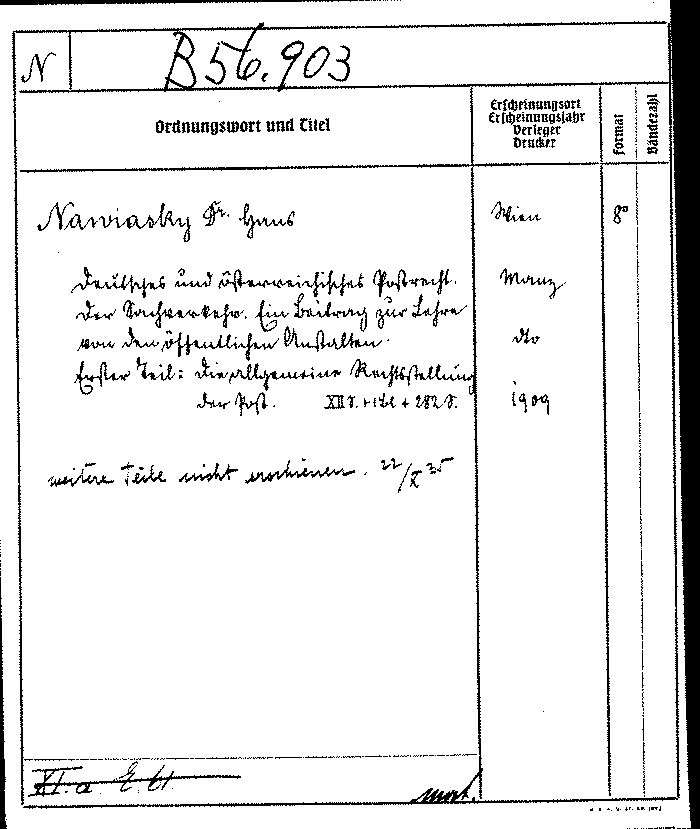 N
B 56.903
Ordnungswort und Titel
Erscheinungsort
Erscheinungsjahr
Verleger
Drucker
Format
Bändezahl
Nawiasky Dr. Hans
Wien
8°
Deutsches und österreichisches Postrecht.
Manz
Der Sachverkehr. Ein Beitrag zur Lehre
von den öffentlichen Anstalten.
dto
Erster Teil: Die allgemeine Rechtsstellung
der Post. XII S. + 1 Bl. + 282 S.
1909
weitere Teile nicht erschienen. 22/X 35
XI. a. E 61